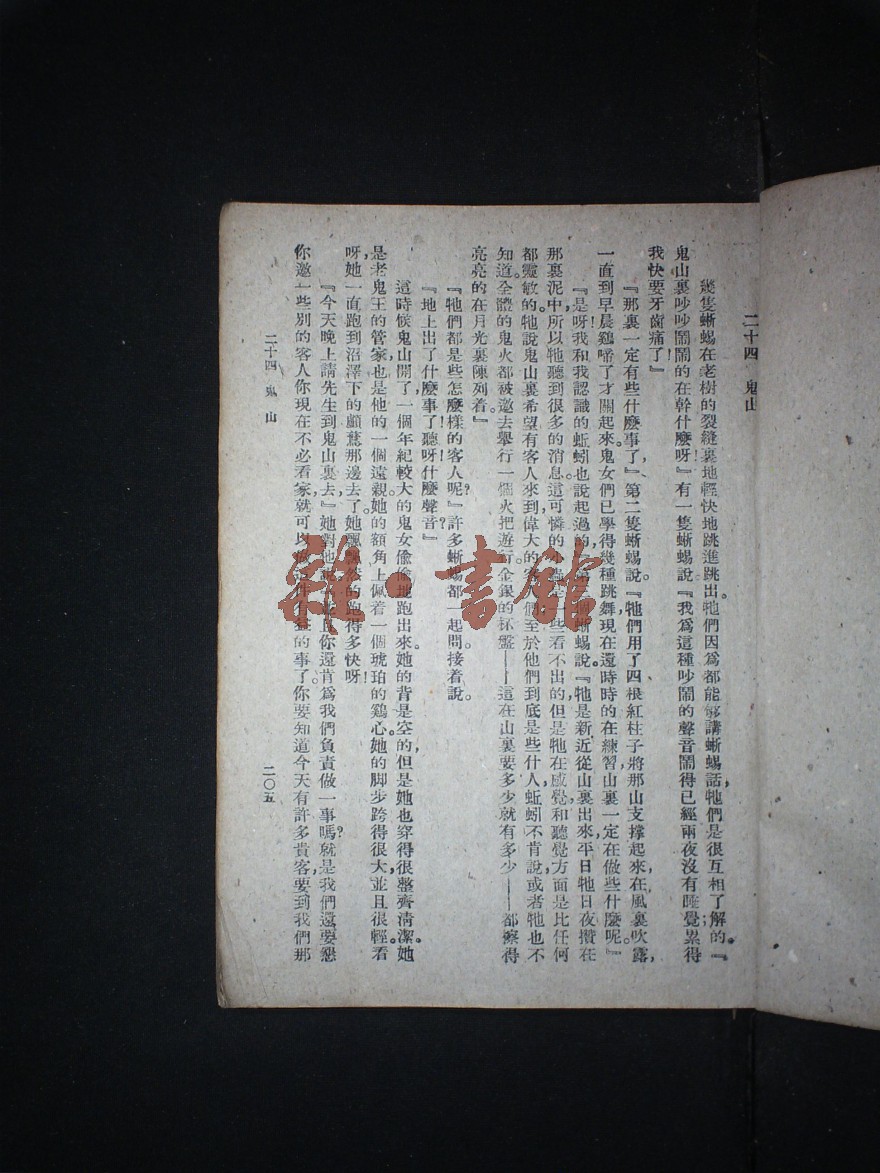 二十四　鬼山
幾隻蜥蜴在老樹的裂縫裏地輕快地跳進跳出。牠們因爲都能够講蜥蜴話，牠們是很互相了解的。『
鬼山裏吵吵鬧鬧的在幹什麼呀』有一隻蜥蜴說。『我爲這種吵鬧的聲音鬧得已經兩夜沒有睡覺；累得
我快要牙齒痛了』
『那裏一定有些什麼事了』第二隻蜥蜴說。『牠們用了四根紅柱子將那山支撐起來，在風裏吹露，
一直到早晨鷄啼了才關起來。鬼女們已學得幾種跳舞，現在還時時的在練習，山裏一定在做些什麼呢。』
『是呀！我和我認識的蚯蚓也說起過的』第三個蜥蜴說。『牠是新近從山裏出來，平日牠日夜攢在
那裏泥中，所以牠聽到很多的消息。這可憐的小蟲是一些看不出的，但是牠在感覺和聽覺方面是比任何
都靈敏的。牠說鬼山裏希望有客人來到，偉大的客人們，至於他們到底是些什人，蚯蚓不肯說，或者牠也不
知道。全體的鬼火都被邀去舉行一個火把遊行，金銀的杯盤——這在山裏要多少就有多少——都擦得
亮亮的在月光裏陳列着。』
『牠們都是些怎麼樣的客人呢？』許多蜥蜴都一起問，接着說。
『地上出了什麼事了！聽呀！什麼聲音？』
這時候鬼山開了，一個年紀較大的鬼女偸偸地跑出來。她的背是空的，但是她也穿得很整齊淸潔。她
是老鬼王的管家，也是他的一個遠親。她的額角上佩着一個琥珀的鷄心。她的脚步跨得很大，並且很輕，看
呀！她一直跑到沼澤下的顧鵟那邊去了。她飄飄然的跑得多快呀！
『今天晚上請先生到鬼山裏去，』她對他說，『並且你還肯爲我們負責做一事嗎？就是我們還要懇
你邀一些別的客人，你現在不必看家，就可以做這件有益的事了。你要知道今天有許多貴客，要到我們那
二十四　鬼　山
二〇五
雜·書館